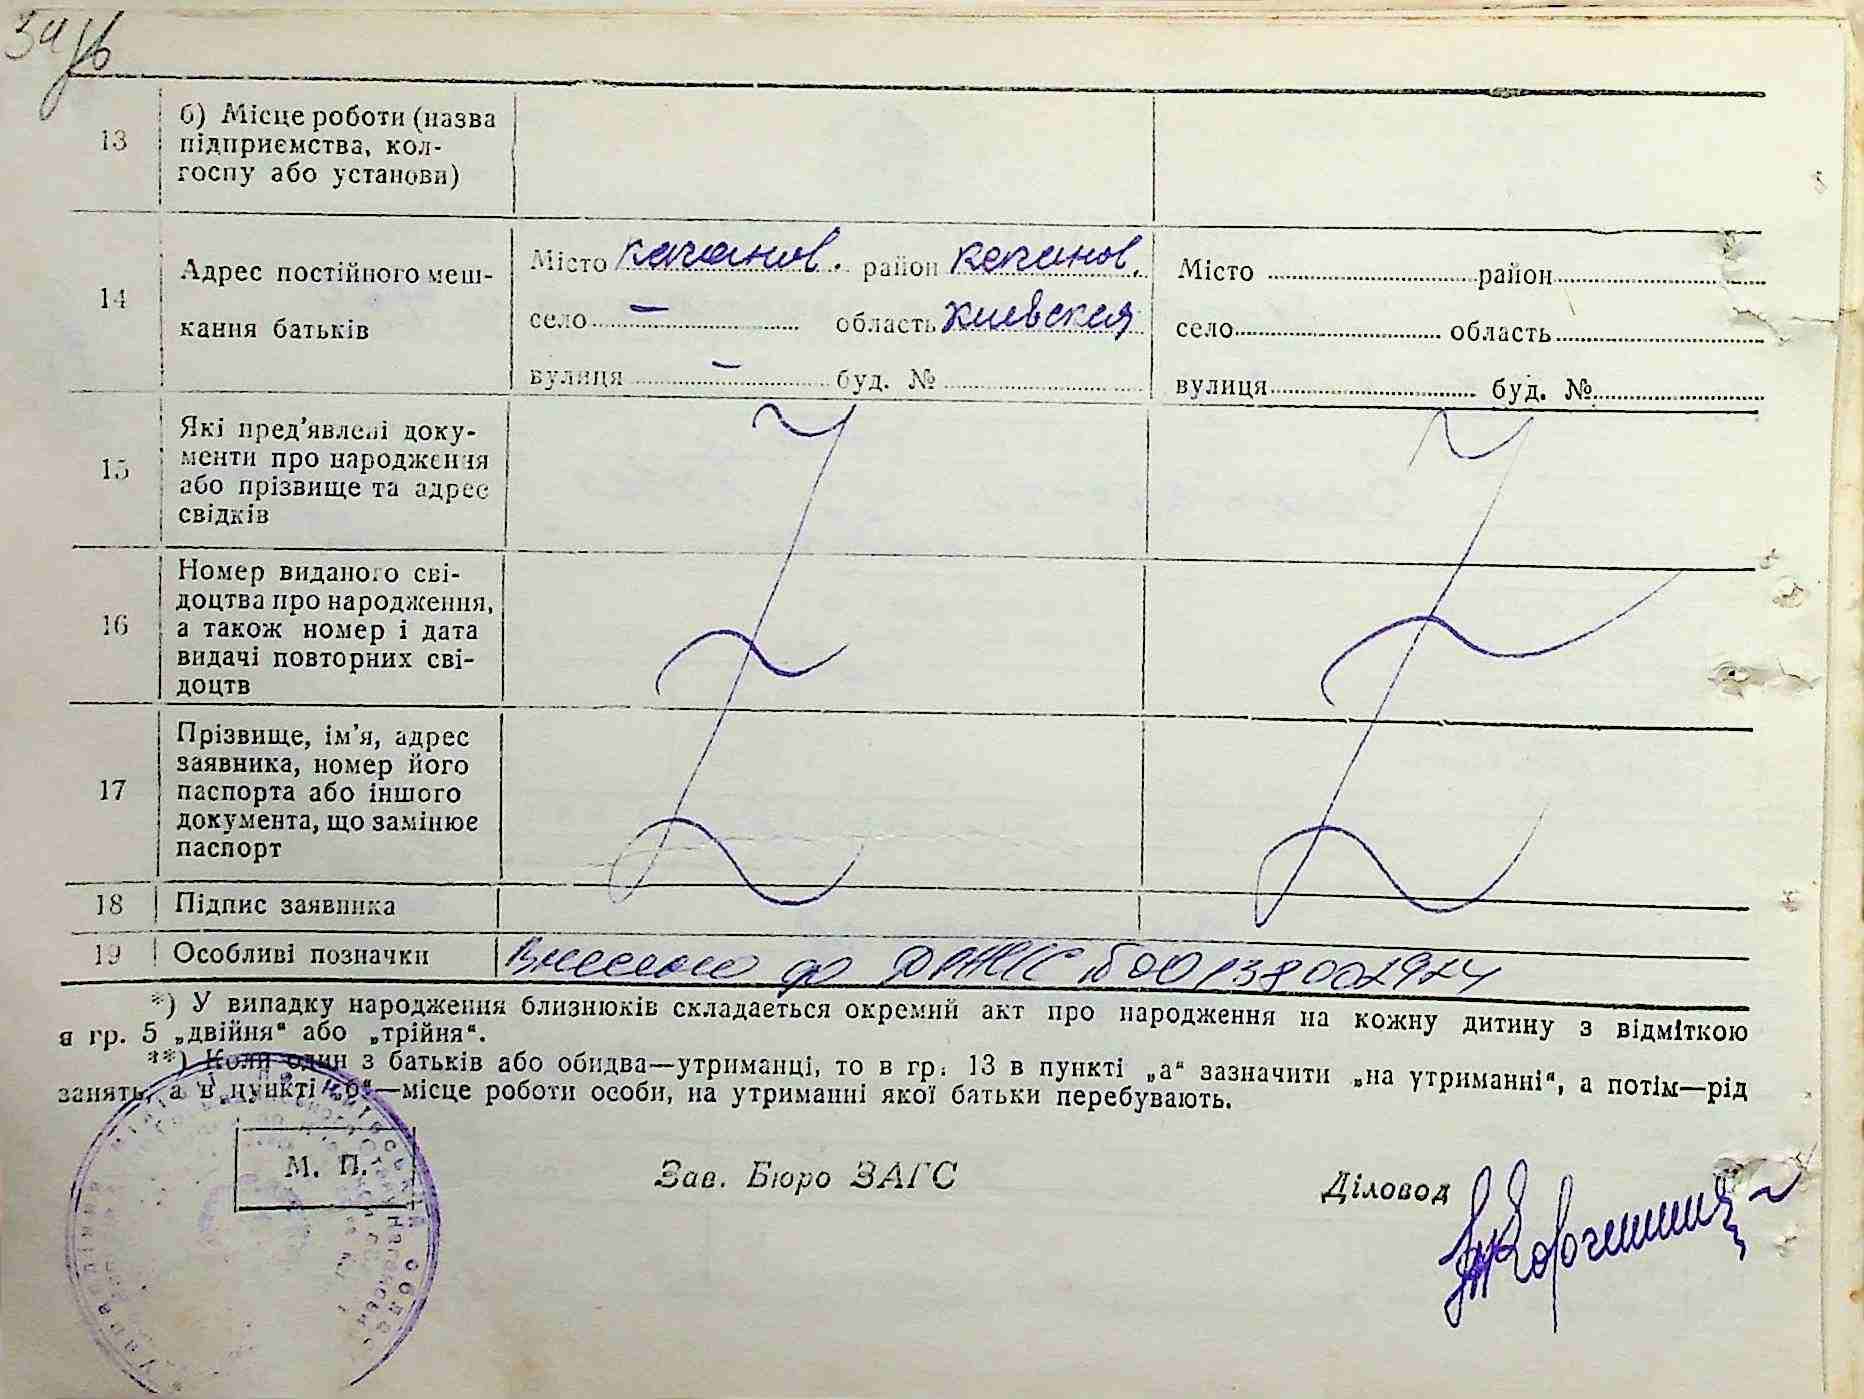 13
б) Місце роботи (назва
підприємства, кол-
госпу або установи)
14
Адрес постійного меш-
кання батьків
Місто качанов. район качанов.
село — область киевская
вулиця — буд. №
Місто район
село область
вулиця буд. №
15
Які пред'явлені доку-
менти про народження
або прізвище та адрес
свідків
16
Номер виданого сві-
доцтва про народження,
а також номер і дата
видачі повторних сві-
доцтв
17
Прізвище, ім'я, адрес
заявника, номер його
паспорта або іншого
документа, що замінює
паспорт
18
Підпис заявника
19
Особливі позначки
Внесено до ДРАЦС 00138002924
*) У випадку народження близнюків складається окремий акт про народження на кожну дитину з відміткою
в гр. 5 „двійня“ або „трійня“.
**) Коли один з батьків або обидва—утриманці, то в гр. 13 в пункті „а“ зазначити „на утриманні“, а потім—рід
занять, а в пункті „б“—місце роботи особи, на утриманні якої батьки перебувають.
М. П.
Зав. Бюро ЗАГС
Діловод